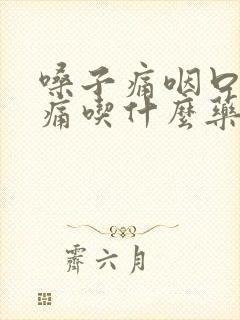 嗓子痛咽口
痛喫什麼藥
霽六月